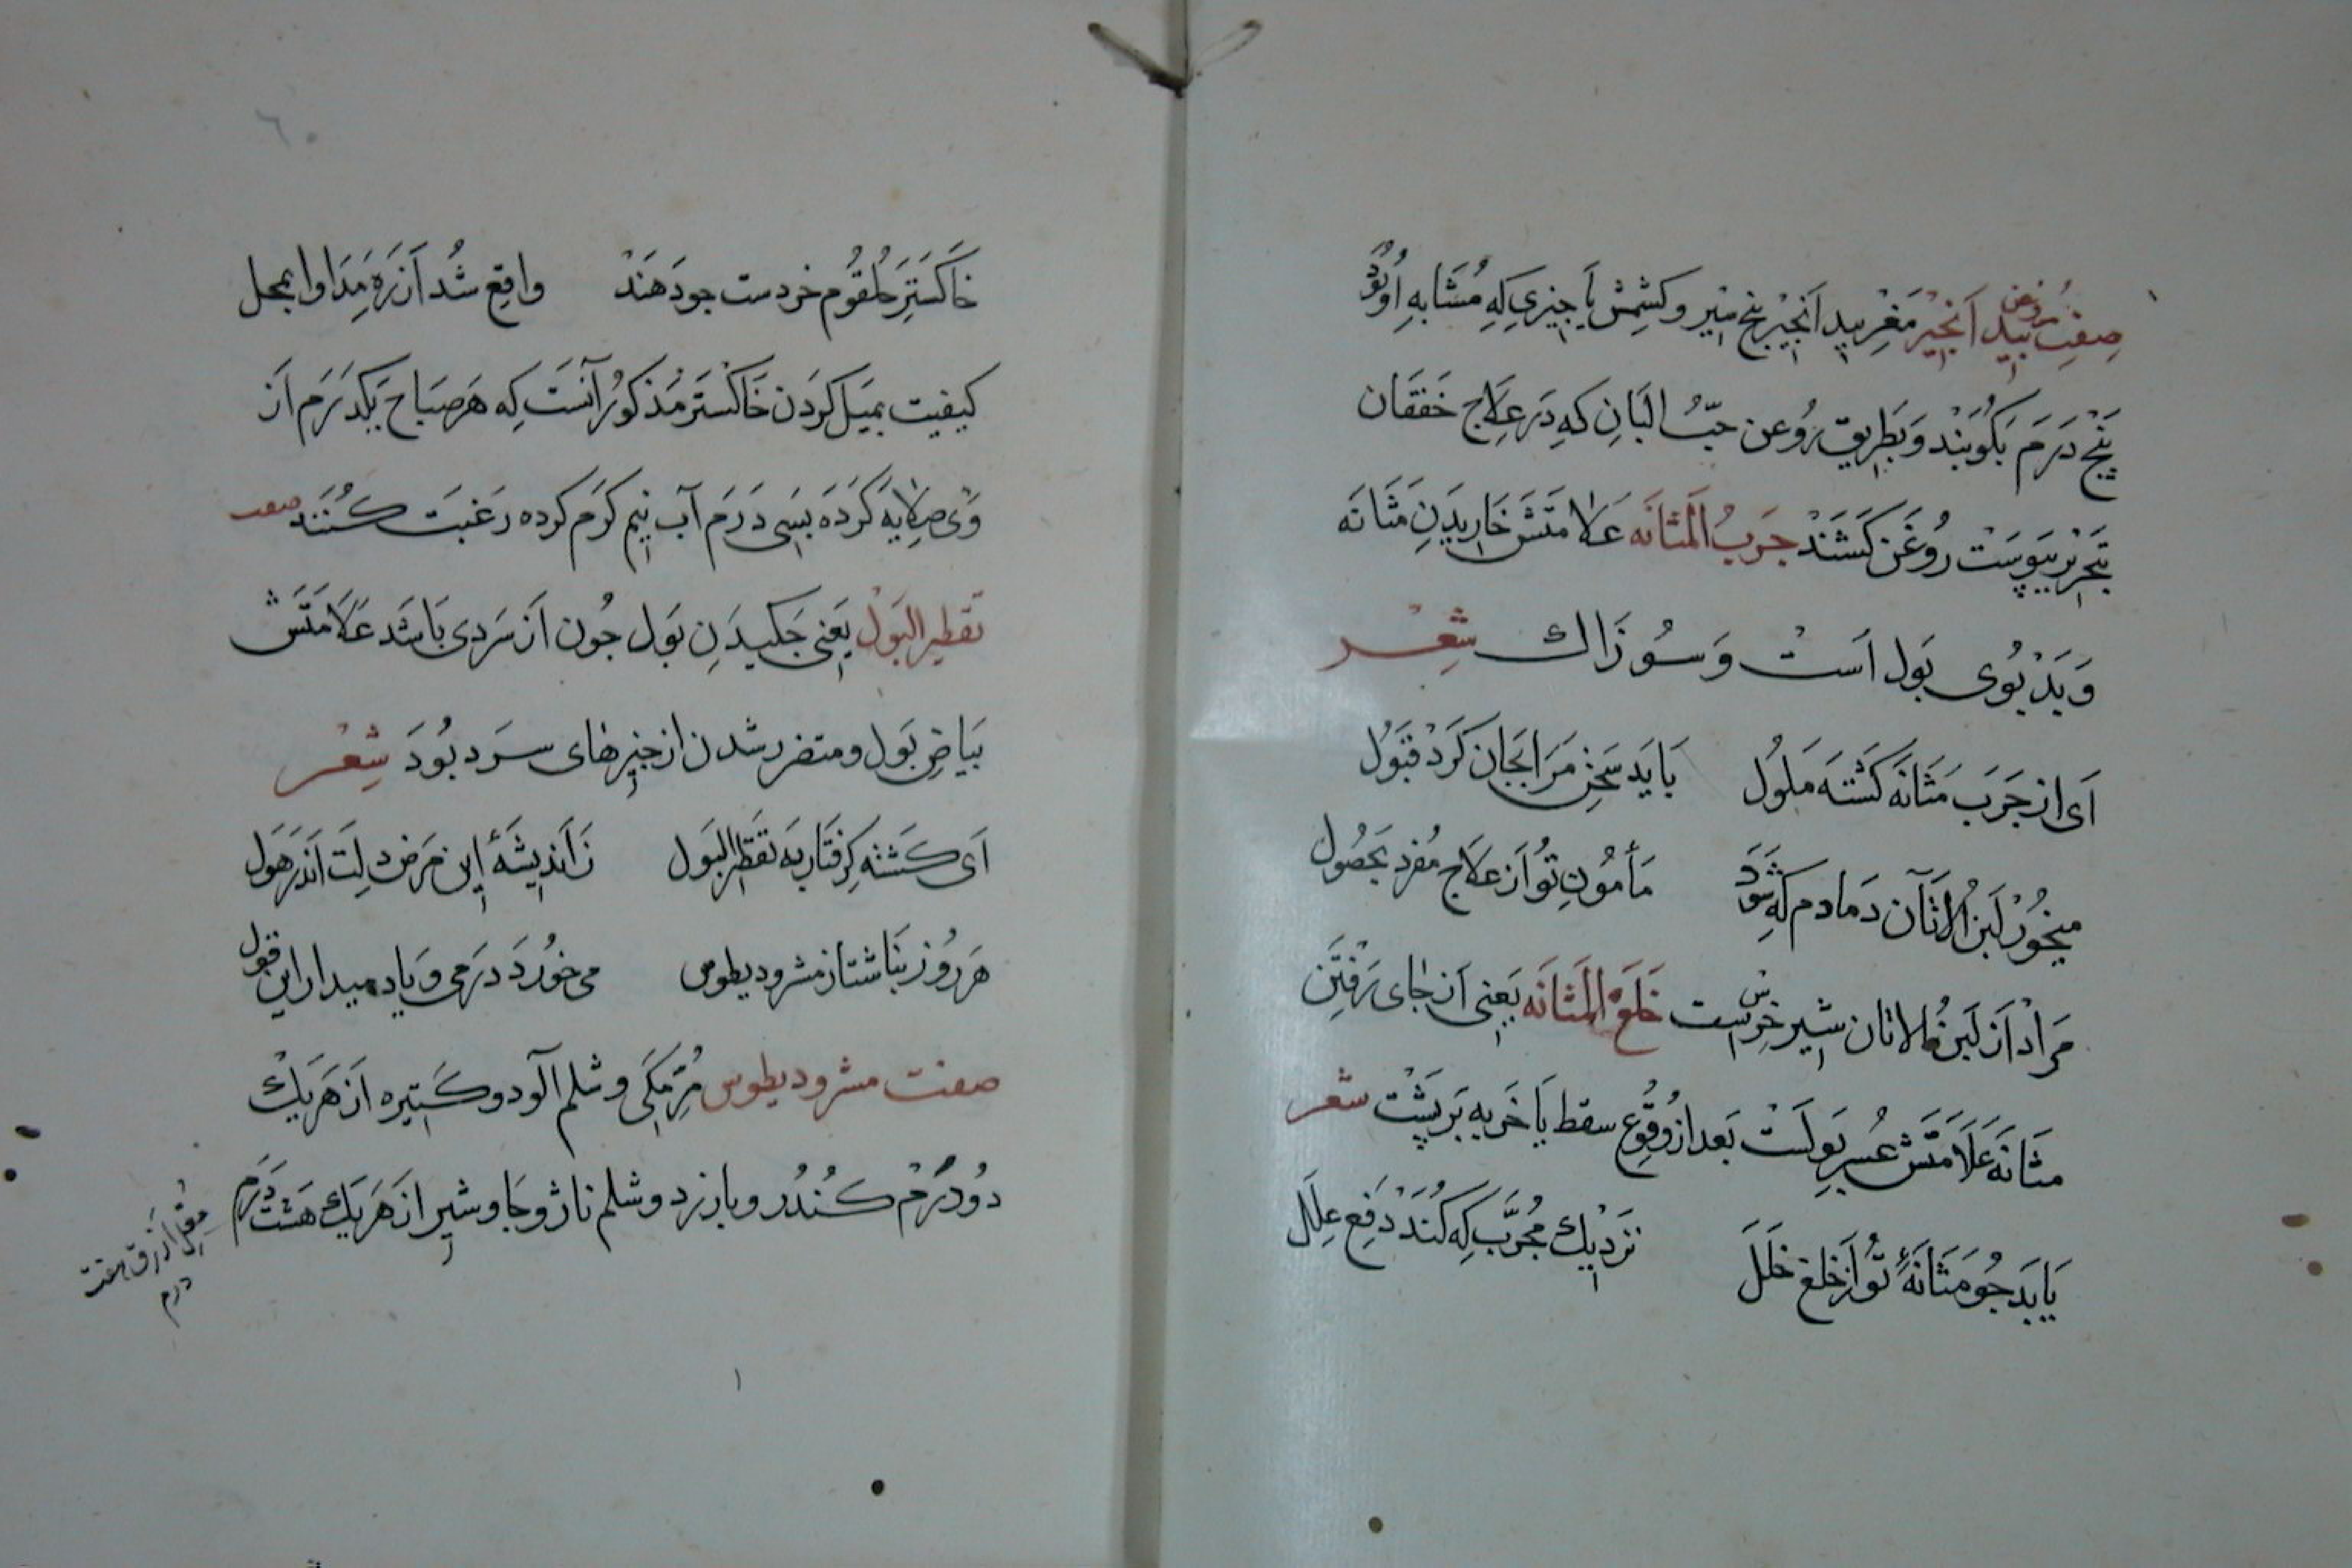 صِفَتِ رُوغن بيد اَنجير مَغزِ بيد اَنجير پنج مَنير و كشمش يا چيزى كِه مُشابِه اُو بُوَد
پَنج دَرَم بَكُوبَند وَ بَطَرِيق رُوغن حبّ البَانِ كه دَر عِلاج خَفَقَان
بَپوست رُوغَن كَشَند جَرَبُ المَثَانَه عَلامَتَش خَارِيدَنِ مَثَانَه
وَ بَدبُوى بَول اَست وَ سُوزَاك شِعر
اَى از جَرَبِ مَثَانَه كَشتَه مَلُول بَايَد سَخَنِ مَرا بَجَان كَرد قَبُول
ميخُور لَبَن الاَتَان دَمادم كه شَوَد مَأمُونِ تُو اَز عِلاج مُفرد بَحُصُول
مَراد اَز لَبَنُ الاتان شير خرست خَلعُ المَثَانَه يَعنِى اَز جَاى رَفتَنِ
مثَانَه عَلاَمَتَش عُسرِ بَولَست بَعد از وُقُوعِ سقط يَا ضَربه بَر پُشت شعر
يَابَد چُو مَثَانَهٔ تُو اَز خلع خَلَل نَزديك مُجَرَّب كِه كُنَد دَفع عِلَل
خَاكَستَرِ حُلقُوم خروست چو دَهَند واقع شُد اَز رَهِ مَدَاوا بمحل
كيفيت بعَمَل كَردَن خَاكَستَر مَذكُور آنَست كِه هَر صَبَاح يَكدَرَم اَز
وَى صِلايَه كَردَه بَسى دَرَم آب نِيم گَرم كرده رَغبَت كُنَند صفت
تقطير البَول يَعنِى چَكيدَنِ بَول چُون اَز سَردى بَاشَد عَلاَمَتَش
بَيَاضِ بَول و متضرر شدن از چيزهاى سَرد بُوَد شِعر
اَى كَشته گِرِفتَار به تَقطِير البَول ز اَنديشَهٔ اين مَرَض دِلَت اَندَر هَول
هَر رُوز بَنَاشتا ز مثروديطوس مى خُور دَو دَرَمى وَ ياد ميدار اين قول
صفت مثروديطوس مُرّ مَكّى و شلم آلو و كَتيره اَز هَر يَك
دُو دَرَم كُندُر و بارزد و شلم ناژو و جَاوشير اَز هَر يَك هَشت دَرَم
مُقل اَزرَق هفت
درم
٦٠